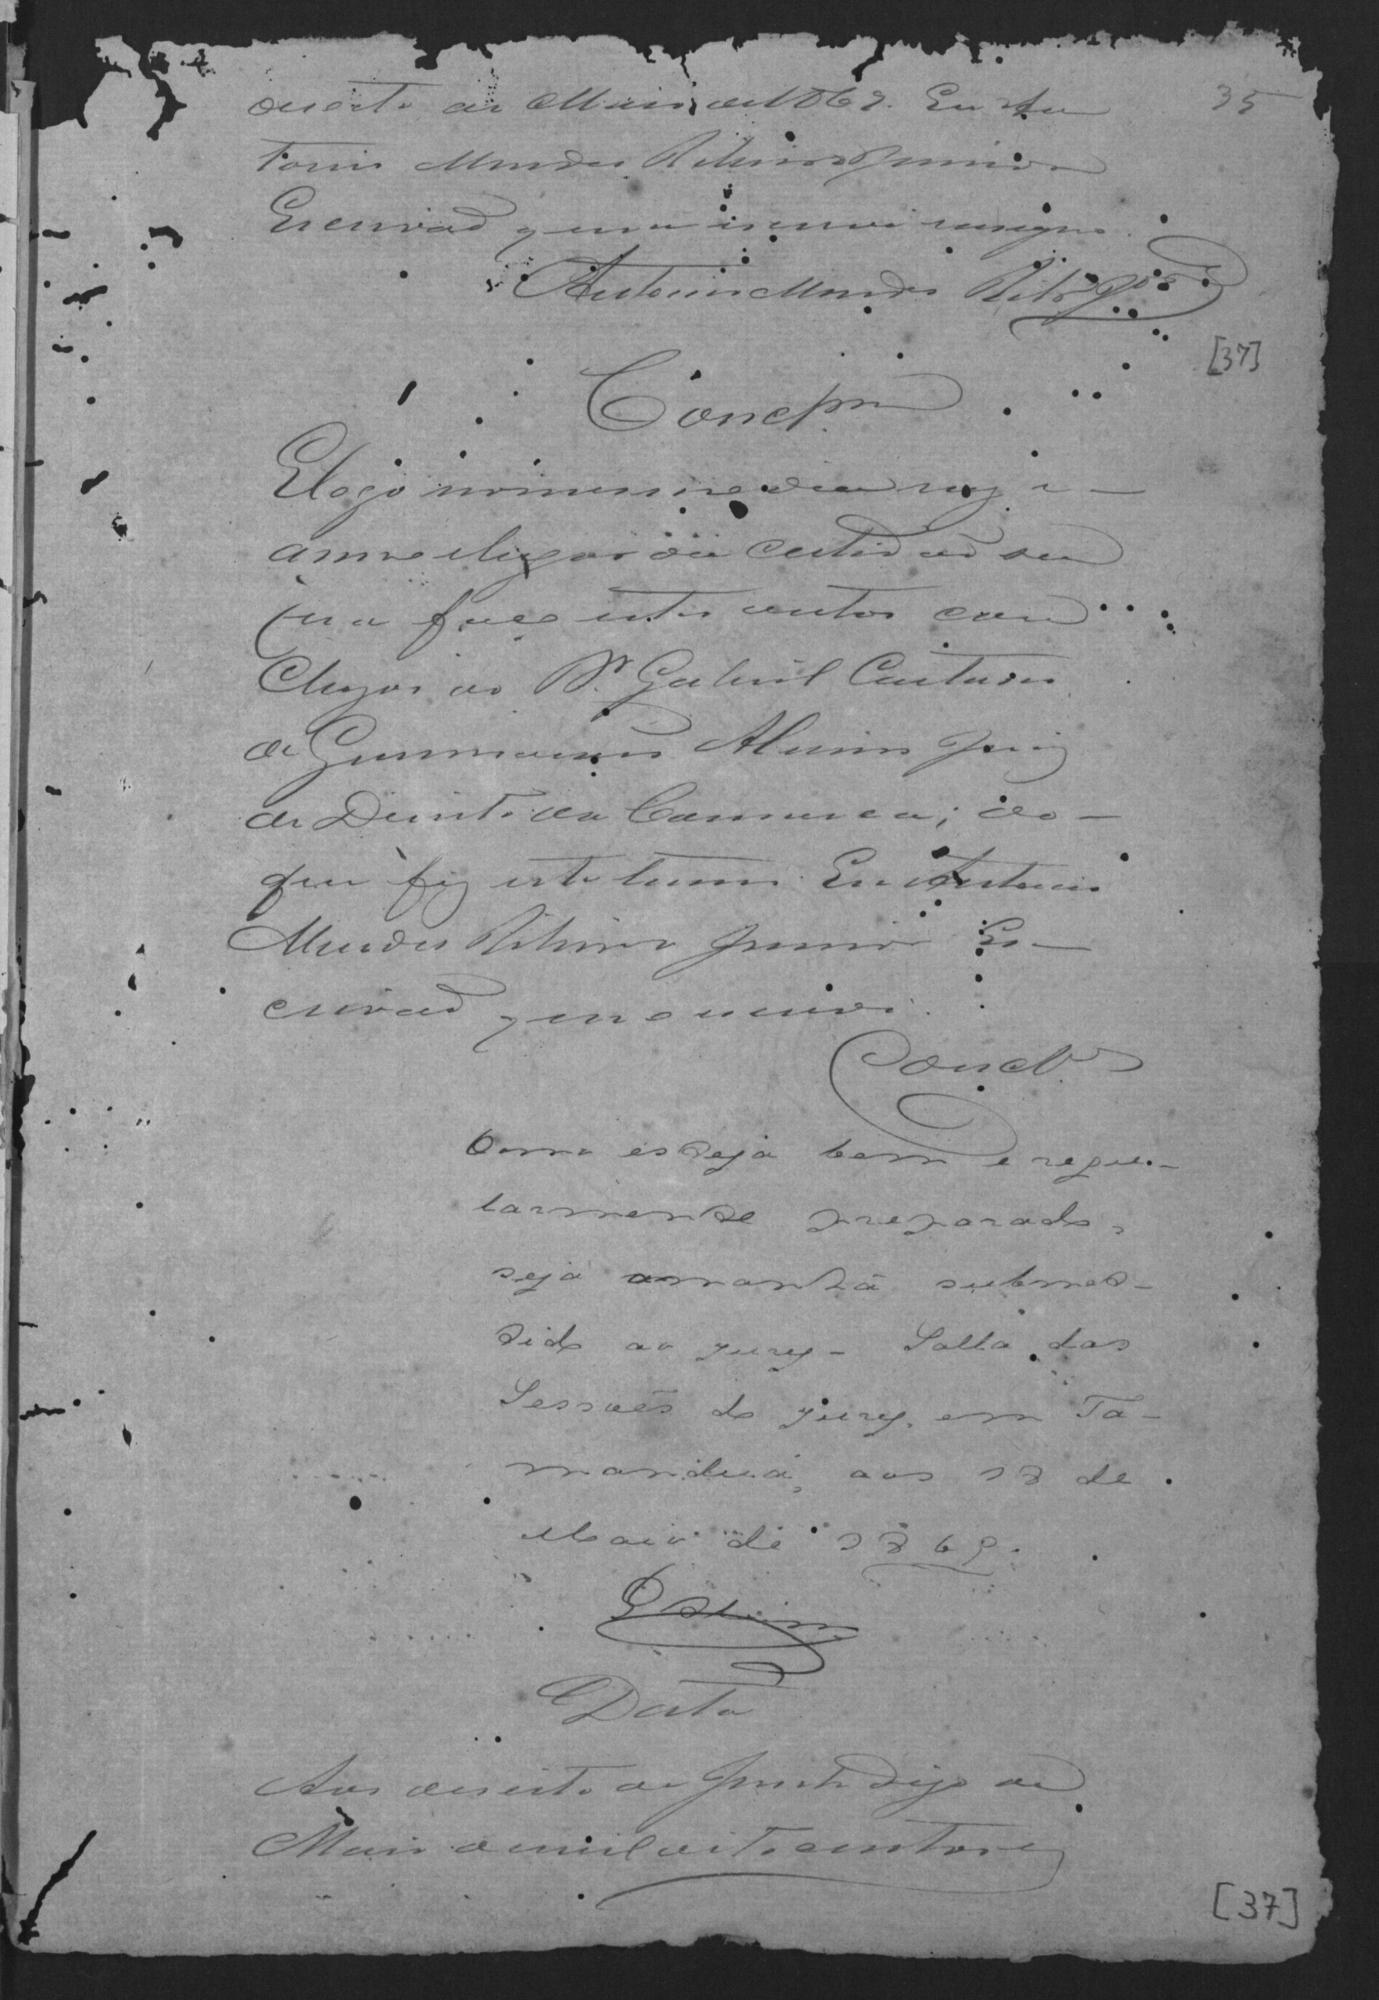 35
desoito de Maio de 1869. Eu An
tonio Mendes Ribeiro Junior
Escrivão que o escrevi e assigno.
Antonio Mendes Ribrº Jºr
[37]
Conclm
E logo no mesmo dia mez e
anno e lugar da Certidão su
pra faço estes autos con
cluzos ao Dr. Gabriel Caetano
de Guimaraens Alvim Juiz
de Direito da Comarca; do
que fiz este termo. Eu Antonio
Mendes Ribeiro Junior Es
crivão que o escrevi.
Concl.os
Como esteja bem e regu-
larmente preparado,
seja amanhã submet-
tido ao jury - Salla das
Sessoẽs do jury, em Ta-
manduá, aos 18 de
Maio de 1869.
GAlvim
Data
Aos desoito de Junho digo de
Maio de mil oitocentos e
[37]